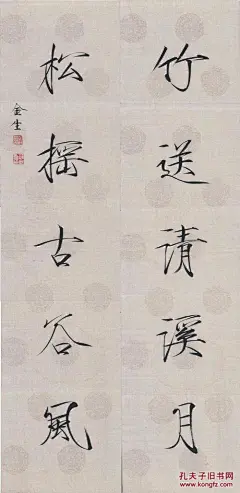 竹送清溪月
松摇古谷風
金生
孔夫子旧书网